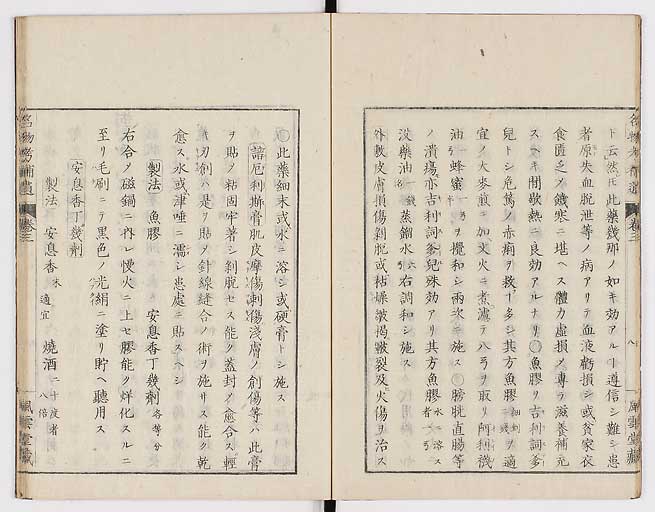 ト云然𪜈此藥幾那ノ如キ効アルヿ遵信シ難シ患
者原失血脱泄等ノ病アリテ血液虧損シ或貧家衣
食匱乏ノ饑寒ニ堪ヘス體力虚損ノ專ラ滋養補充
スヘキ間歇熱ニ良効アルナリ〇魚膠ヲ吉利詞多
兒トシ危篤ノ赤痢ヲ救フヿ多シ其方魚膠細剉ヲ適
宜ノ大麥煎ニ加文火ニ煮濾テ八弓ヲ取リ阿利襪
油一蜂蜜一弓ヲ攪和シ兩次ニ施ス〇膀胱直腸等
ノ潰瘍亦吉利詞多兒殊効アリ其方魚膠水ニ溶ス者
没藥油蒸餾水右調和シ施ス
外敷皮膚損傷剝脱或枯燥皴裂及火傷ヲ治ス
〇此藥細末或水ニ溶シ或硬膏トシ施ス
諳厄利斯膏肌皮摩傷刺傷淺膚ノ創傷等ハ此膏
ヲ貼ノ粘固牢著シ剝脱セス能ク蓋封ノ愈合ス輕
キ刀創ハ是ヲ貼ノ針線縫合ノ術ヲ施サス能ク乾
愈ス水或津唾ニ濡シ患處ニ貼スヘシ
製法 魚膠 安息香丁幾劑各等分
右合ノ磁鍋ニ内レ慢火ニ上セ膠能ク烊化スルニ
至リ毛刷ニテ黑色ノ光絹ニ塗リ貯ヘ聽用ス
安息香丁幾劑
製法 安息香末適宜 燒酒二十度者八倍